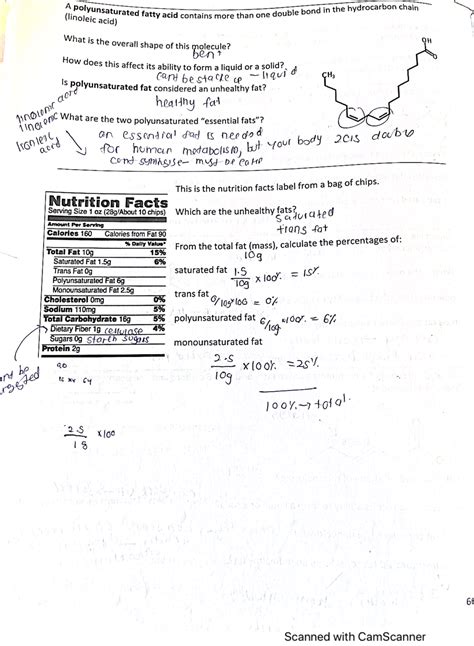 A polyunsaturated fatty acid contains more than one double bond in the hydrocarbon chain
(linoleic acid)
What is the overall shape of this molecule?
bent
How does this affect its ability to form a liquid or a solid?
cant be stacked up - liquid
Is polyunsaturated fat considered an unhealthy fat?
healthy fat
CH₃
OH
O
What are the two polyunsaturated "essential fats"?
acid
an essential is needed
for human metabolism, but your body
cant - must be
2 cis double
This is the nutrition facts label from a bag of chips.
Nutrition Facts
Serving Size 1 oz (28g/About 10 chips)
Amount Per Serving
Calories 160 Calories from Fat 90
% Daily Value*
Total Fat 10g 15%
Saturated Fat 1.5g 6%
Trans Fat 0g
Polyunsaturated Fat 6g
Monounsaturated Fat 2.5g
Cholesterol 0mg 0%
Sodium 110mg 5%
Total Carbohydrate 16g 5%
Dietary Fiber 1g cellulose 4%
Sugars 0g starch sugars
Protein 2g
Which are the unhealthy fats?
saturated
trans fat
From the total fat (mass), calculate the percentages of:
10g
saturated fat 1.5/10g x 100% = 15%
trans fat
0/10g x 100 = 0%
polyunsaturated fat 6/10g x 100% = 6%
monounsaturated fat
2.5/10g x 100% = 25%
100% → total
2.5/18 x 100
Scanned with CamScanner